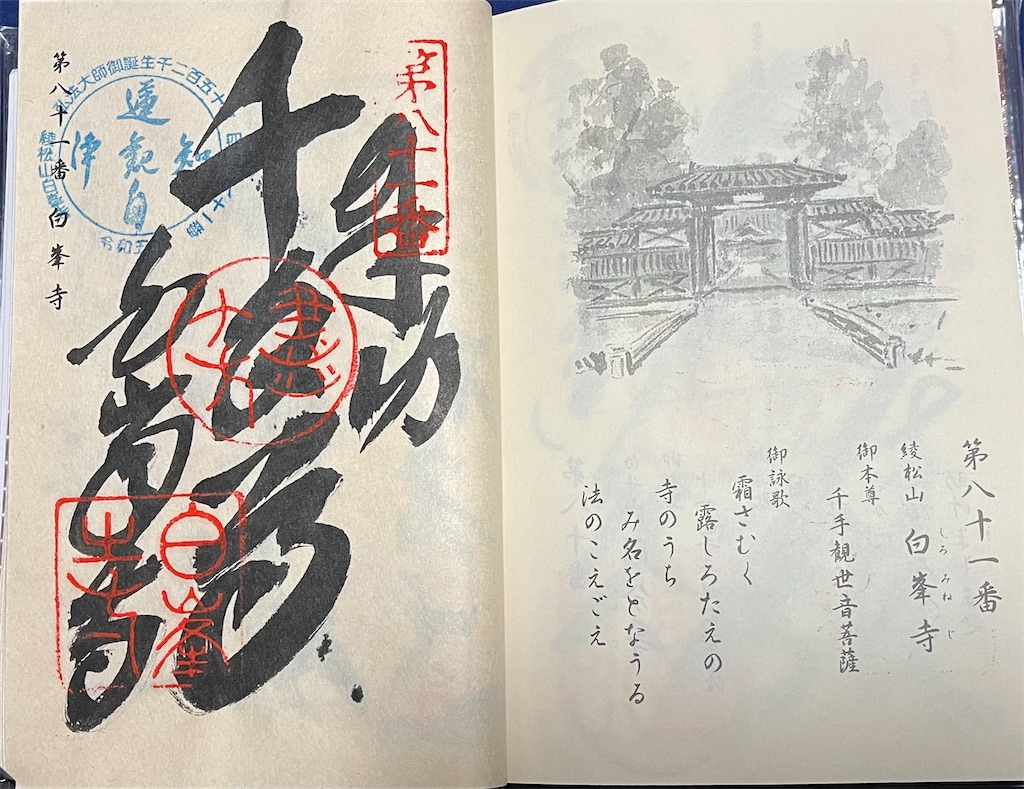 第八十一番
綾松山 白峯寺
しろみねじ
御本尊
千手観世音菩薩
御詠歌
霜さむく
露しろたえの
寺のうち
み名をとなうる
法のこえごえ
第八十一番
千
白峯寺
法大師御誕生千二百五十
綾松山白峯
令和五
第八十一番 白峯寺